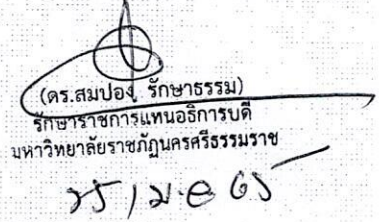 (ดร.สมปอง รักษาธรรม)
รักษาราชการแทนอธิการบดี
มหาวิทยาลัยราชภัฏนครศรีธรรมราช